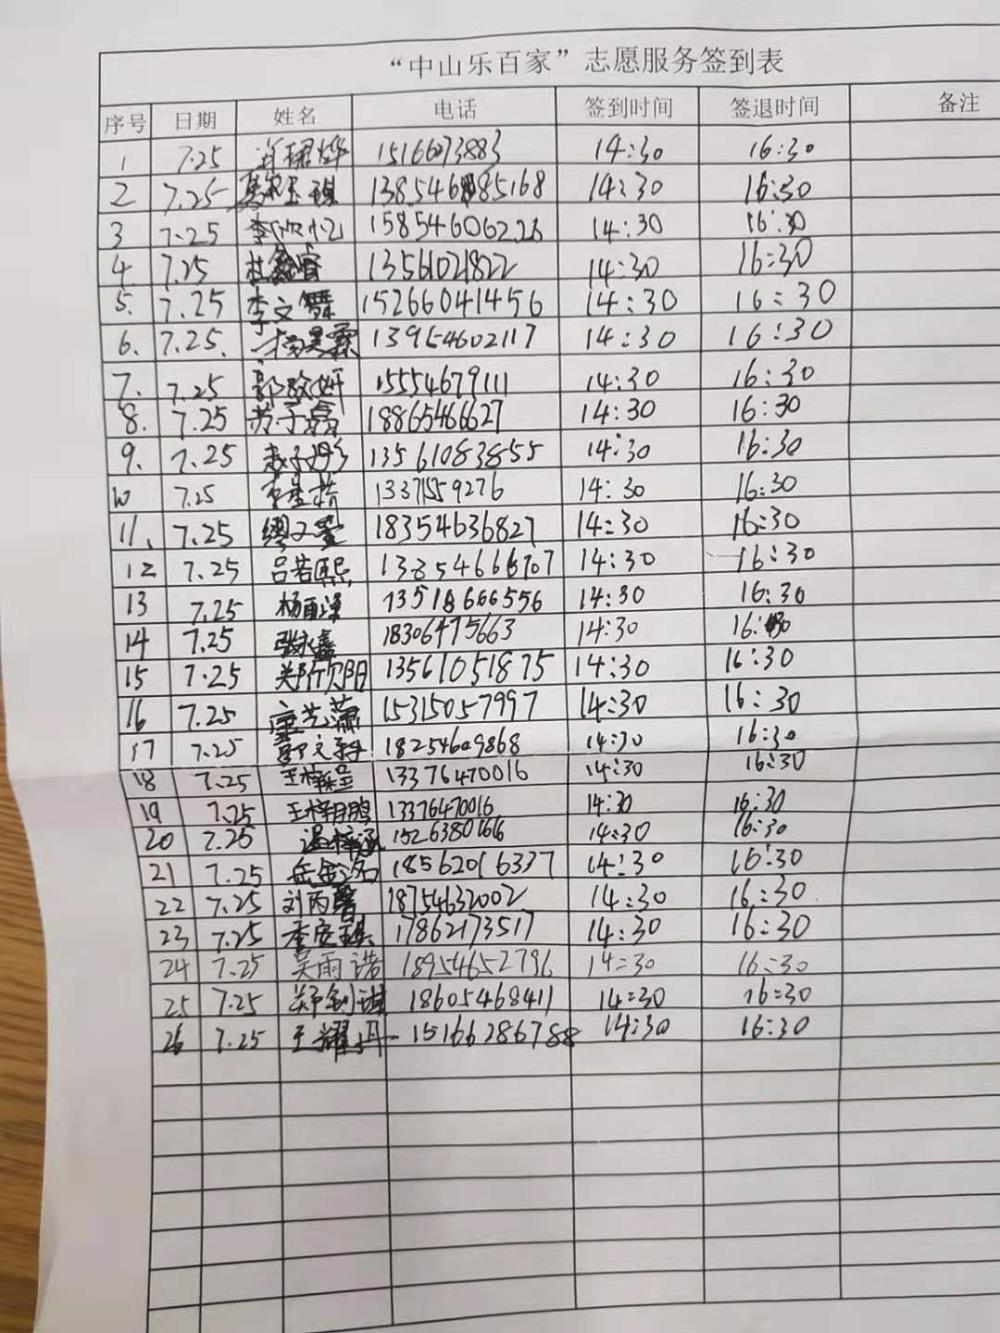 “中山乐百家”志愿服务签到表
序号 日期 姓名 电话 签到时间 签退时间 备注
1 7.25 15166273883 14:30 16:30
2 7.25 14:30 16:30
3 7.25 15854606226 14:30 16:30
4. 7.25 13561021822 14:30 16:30
5. 7.25 李文 15266041456 14:30 16:30
6. 7.25. 13954602117 14:30 16:30
7. 7.25 15554679111 14:30 16:30
8. 7.25 苏子 18865466627 14:30 16:30
9. 7.25 赵子彤 13561083855 14:30 16:30
10 7.25 13371559276 14:30 16:30
11. 7.25 18354636827 14:30 16:30
12 7.25 吕若熙 14:30 16:30
13 7.25 13518666556 14:30 16:30
14 7.25 张永鑫 18306475663 14:30 16:30
15 7.25 郑欣阳 13561051875 14:30 16:30
16 7.25 15315057997 14:30 16:30
17 7.25 18254609868 14:30 16:30
18 7.25 13376470016 14:30 16:30
19 7.25 13376470016 14:30 16:30
20 7.25 温梓涵 14:30 16:30
21 7.25 18562016337 14:30 16:30
22 7.25 刘丙馨 18754632002 14:30 16:30
23 7.25 李安琪 17862173517 14:30 16:30
24 7.25 吴雨诺 18954652796 14:30 16:30
25 7.25 18605468411 14:30 16:30
26 7.25 王耀丹 15166286788 14:30 16:30